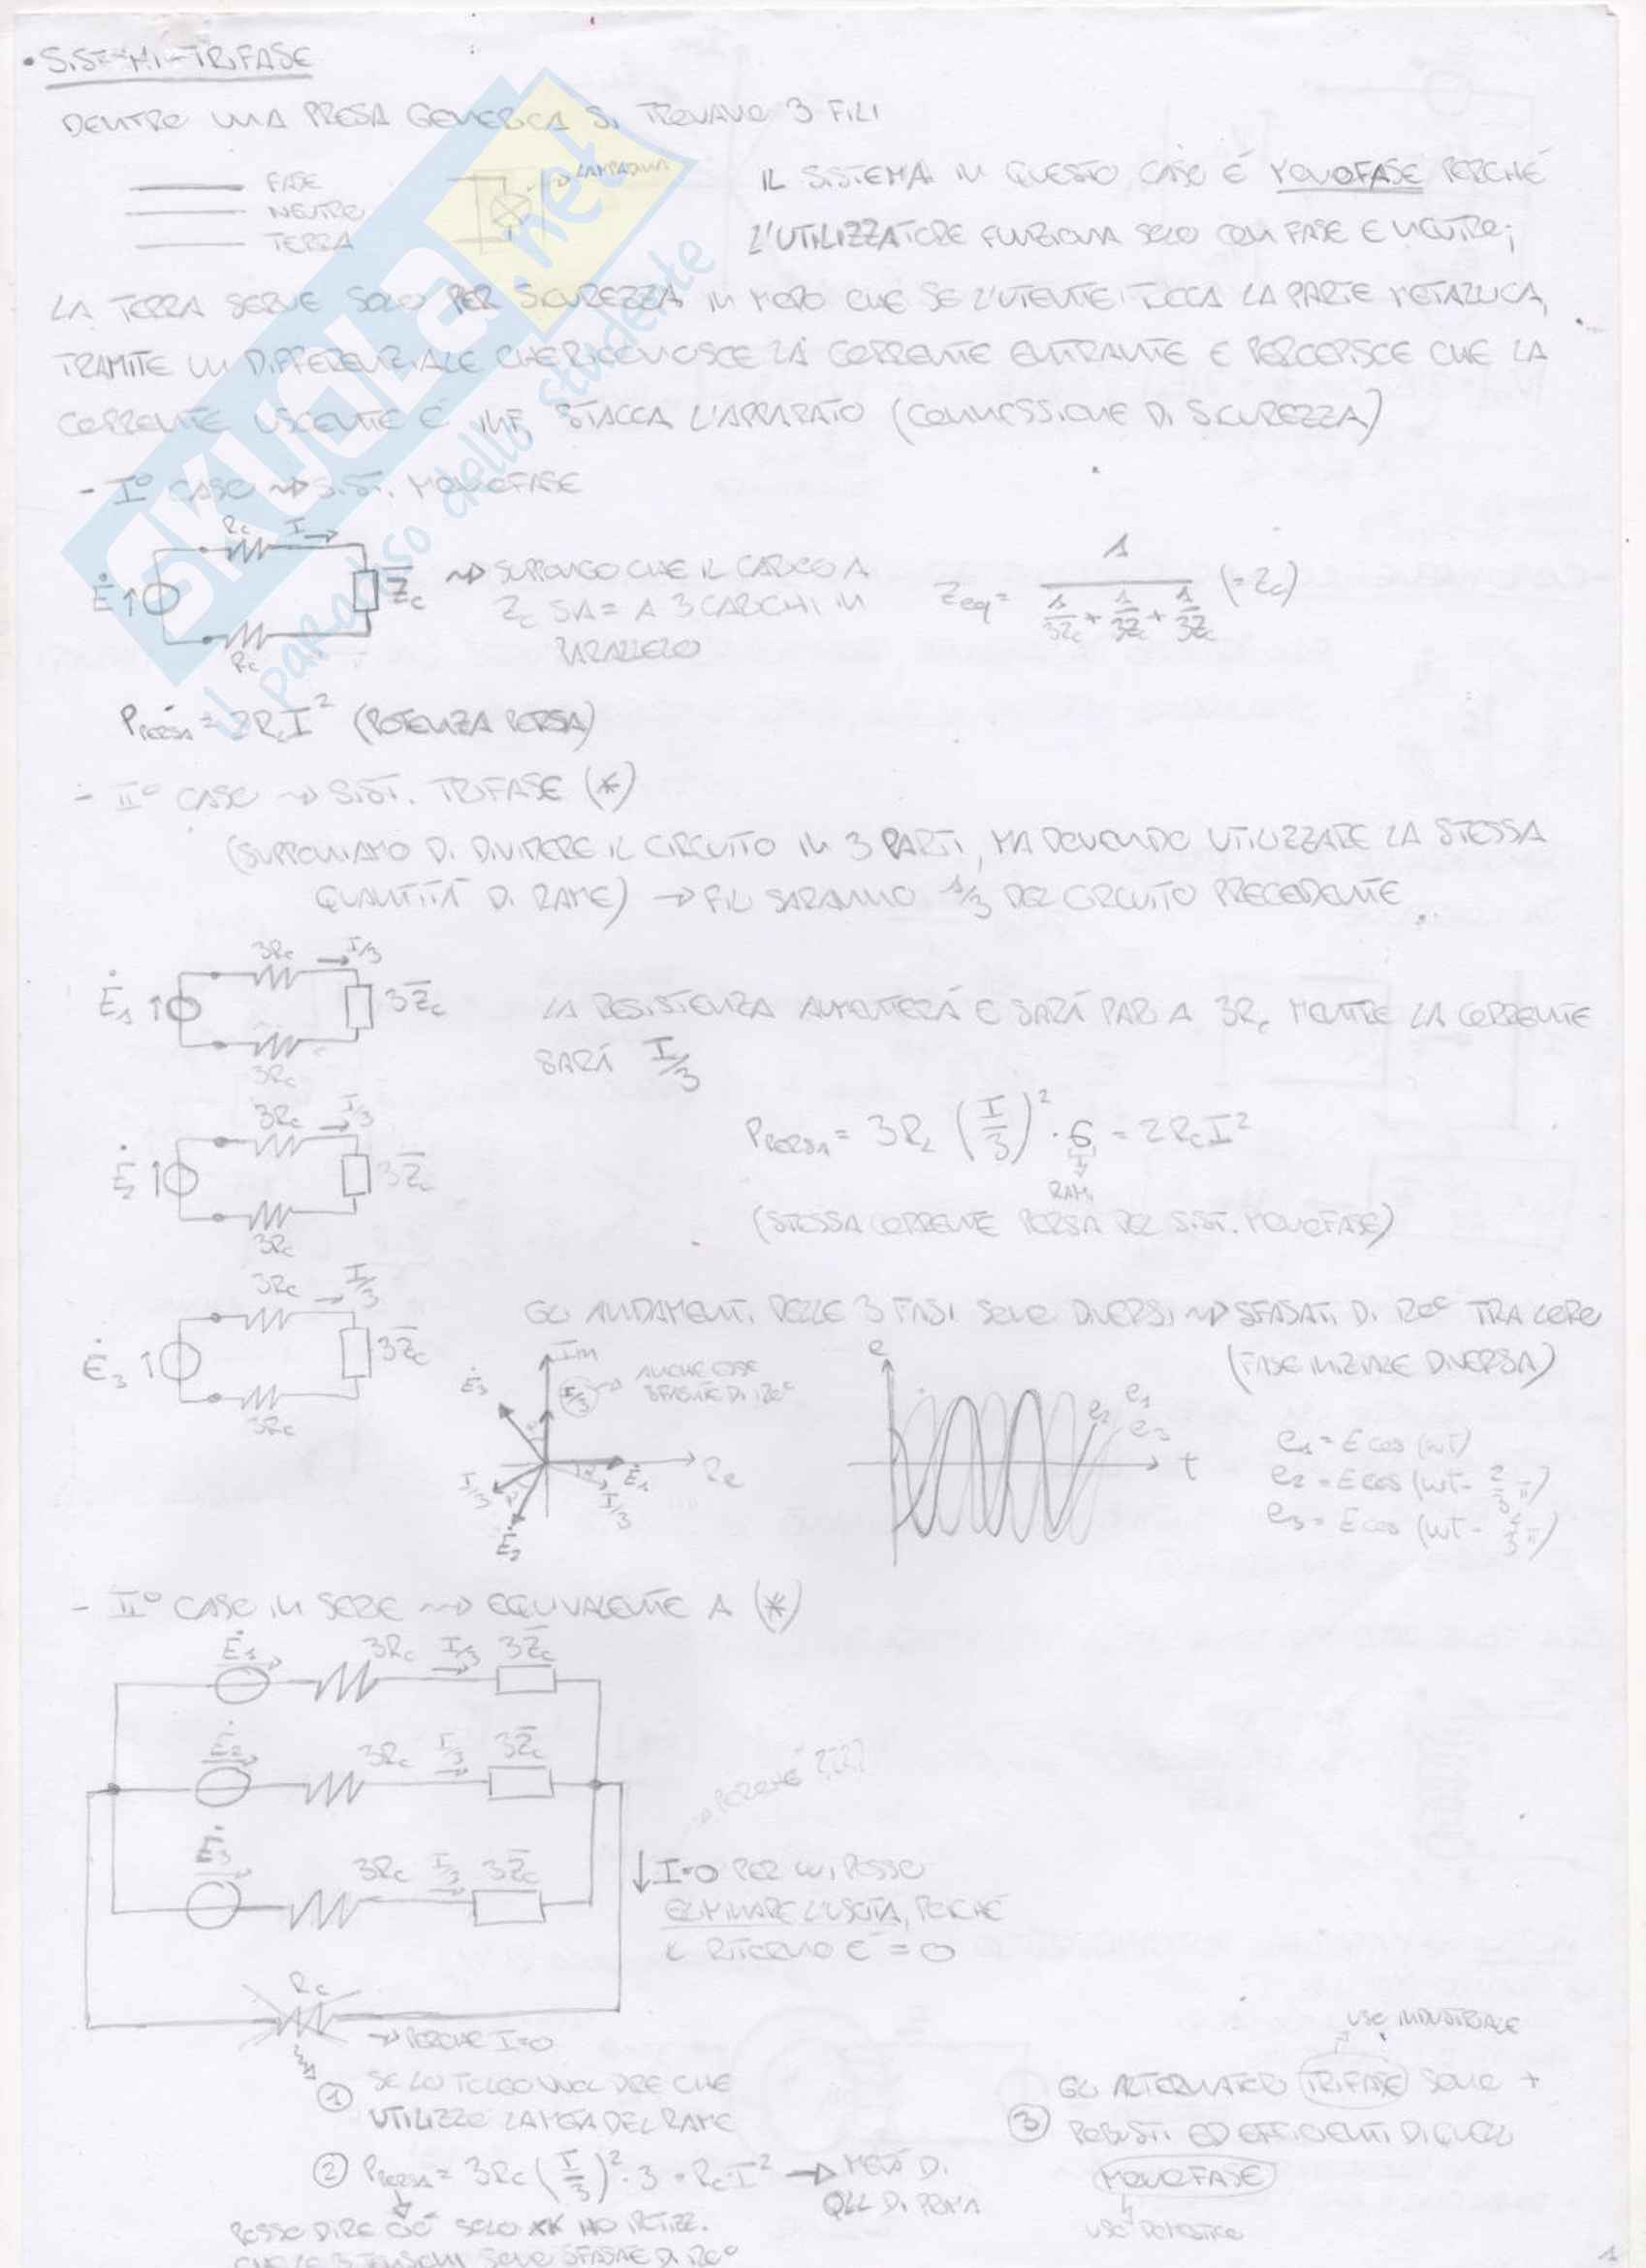 • SISTEMI TRIFASE
DENTRO UNA PRESA GENERICA SI TROVANO 3 FILI
FASE
NEUTRO
TERRA
LAMPADINA
IL SISTEMA IN QUESTO CASO É MONOFASE PERCHÉ
L'UTILIZZATORE FUNZIONA SOLO CON FASE E NEUTRO;
LA TERRA SERVE SOLO PER SICUREZZA IN MODO CHE SE L'UTENTE TOCCA LA PARTE METALLICA,
TRAMITE UN DIFFERENZIALE CHE RICONOSCE LA CORRENTE ENTRANTE E PERCEPISCE CHE LA
CORRENTE USCENTE É INF. STACCA L'APPARATO (CONNESSIONE DI SICUREZZA)
- I° CASO ⇝ SIST. MONOFASE
Rc I →
Ė ↑ Z̅c
Rc
⇝ SUPPONGO CHE IL CARICO A
Zc SIA = A 3 CARICHI IN
PARALLELO
Zeq = 1 / (1/3Zc + 1/3Zc + 1/3Zc) (=Zc)
Ppersa = 2RcI² (POTENZA PERSA)
- II° CASO ⇝ SIST. TRIFASE (*)
(SUPPONIAMO DI DIVIDERE IL CIRCUITO IN 3 PARTI, MA DOVENDO UTILIZZARE LA STESSA
QUANTITÀ DI RAME) → FILI SARANNO 1/3 DEL CIRCUITO PRECEDENTE
3Rc → I/3
Ė1 ↑ 3Z̅c
3Rc
LA RESISTENZA AUMENTERÁ E SARÁ PARI A 3Rc MENTRE LA CORRENTE
SARÁ I/3
3Rc → I/3
Ė2 ↑ 3Z̅c
3Rc
Ppersa = 3Rc (I/3)² · 6 = 2RcI²
RAMI
(STESSA CORRENTE PERSA DEL SIST. MONOFASE)
3Rc → I/3
Ė3 ↑ 3Z̅c
3Rc
GLI ANDAMENTI DELLE 3 FASI SONO DIVERSI ⇝ SFASATI DI 120° TRA LORO
(FASE INIZIALE DIVERSA)
Im
I/3 → ANCHE ESSE
SFASATE DI 120°
Ė3
Ė1
Re
I/3
I/3
Ė2
e
e1
e2
e3
t
e1 = E cos (wt)
e2 = E cos (wt - 2/3 π)
e3 = E cos (wt - 4/3 π)
- II° CASO IN SERIE ⇝ EQUIVALENTE A (*)
Ė1 3Rc I/3 3Z̅c
Ė2 3Rc I/3 3Z̅c
→ PERCHÉ ????
Ė3 3Rc I/3 3Z̅c
↓ I=0 PER CUI POSSO
ELIMINARE L'USCITA, POICHÉ
IL RITORNO É = 0
Rc
→ PERCHÉ I=0
① SE LO TOLGO VUOL DIRE CHE
UTILIZZO LA METÀ DEL RAME
② Ppersa = 3Rc (I/3)² · 3 = Rc I² → METÀ DI
QLL DI PRIMA
POSSO DIRE CIÓ SOLO XK HO IPOTIZZ.
CHE LE 3 TENSIONI SONO SFASATE DI 120°
USO INDUSTRIALE
③ GLI ALTERNATORI TRIFASE SONO +
ROBUSTI ED EFFICIENTI DI QUELLI
MONOFASE
USO DOMESTICO
1
SKUOLA.net
il paradiso dello studente